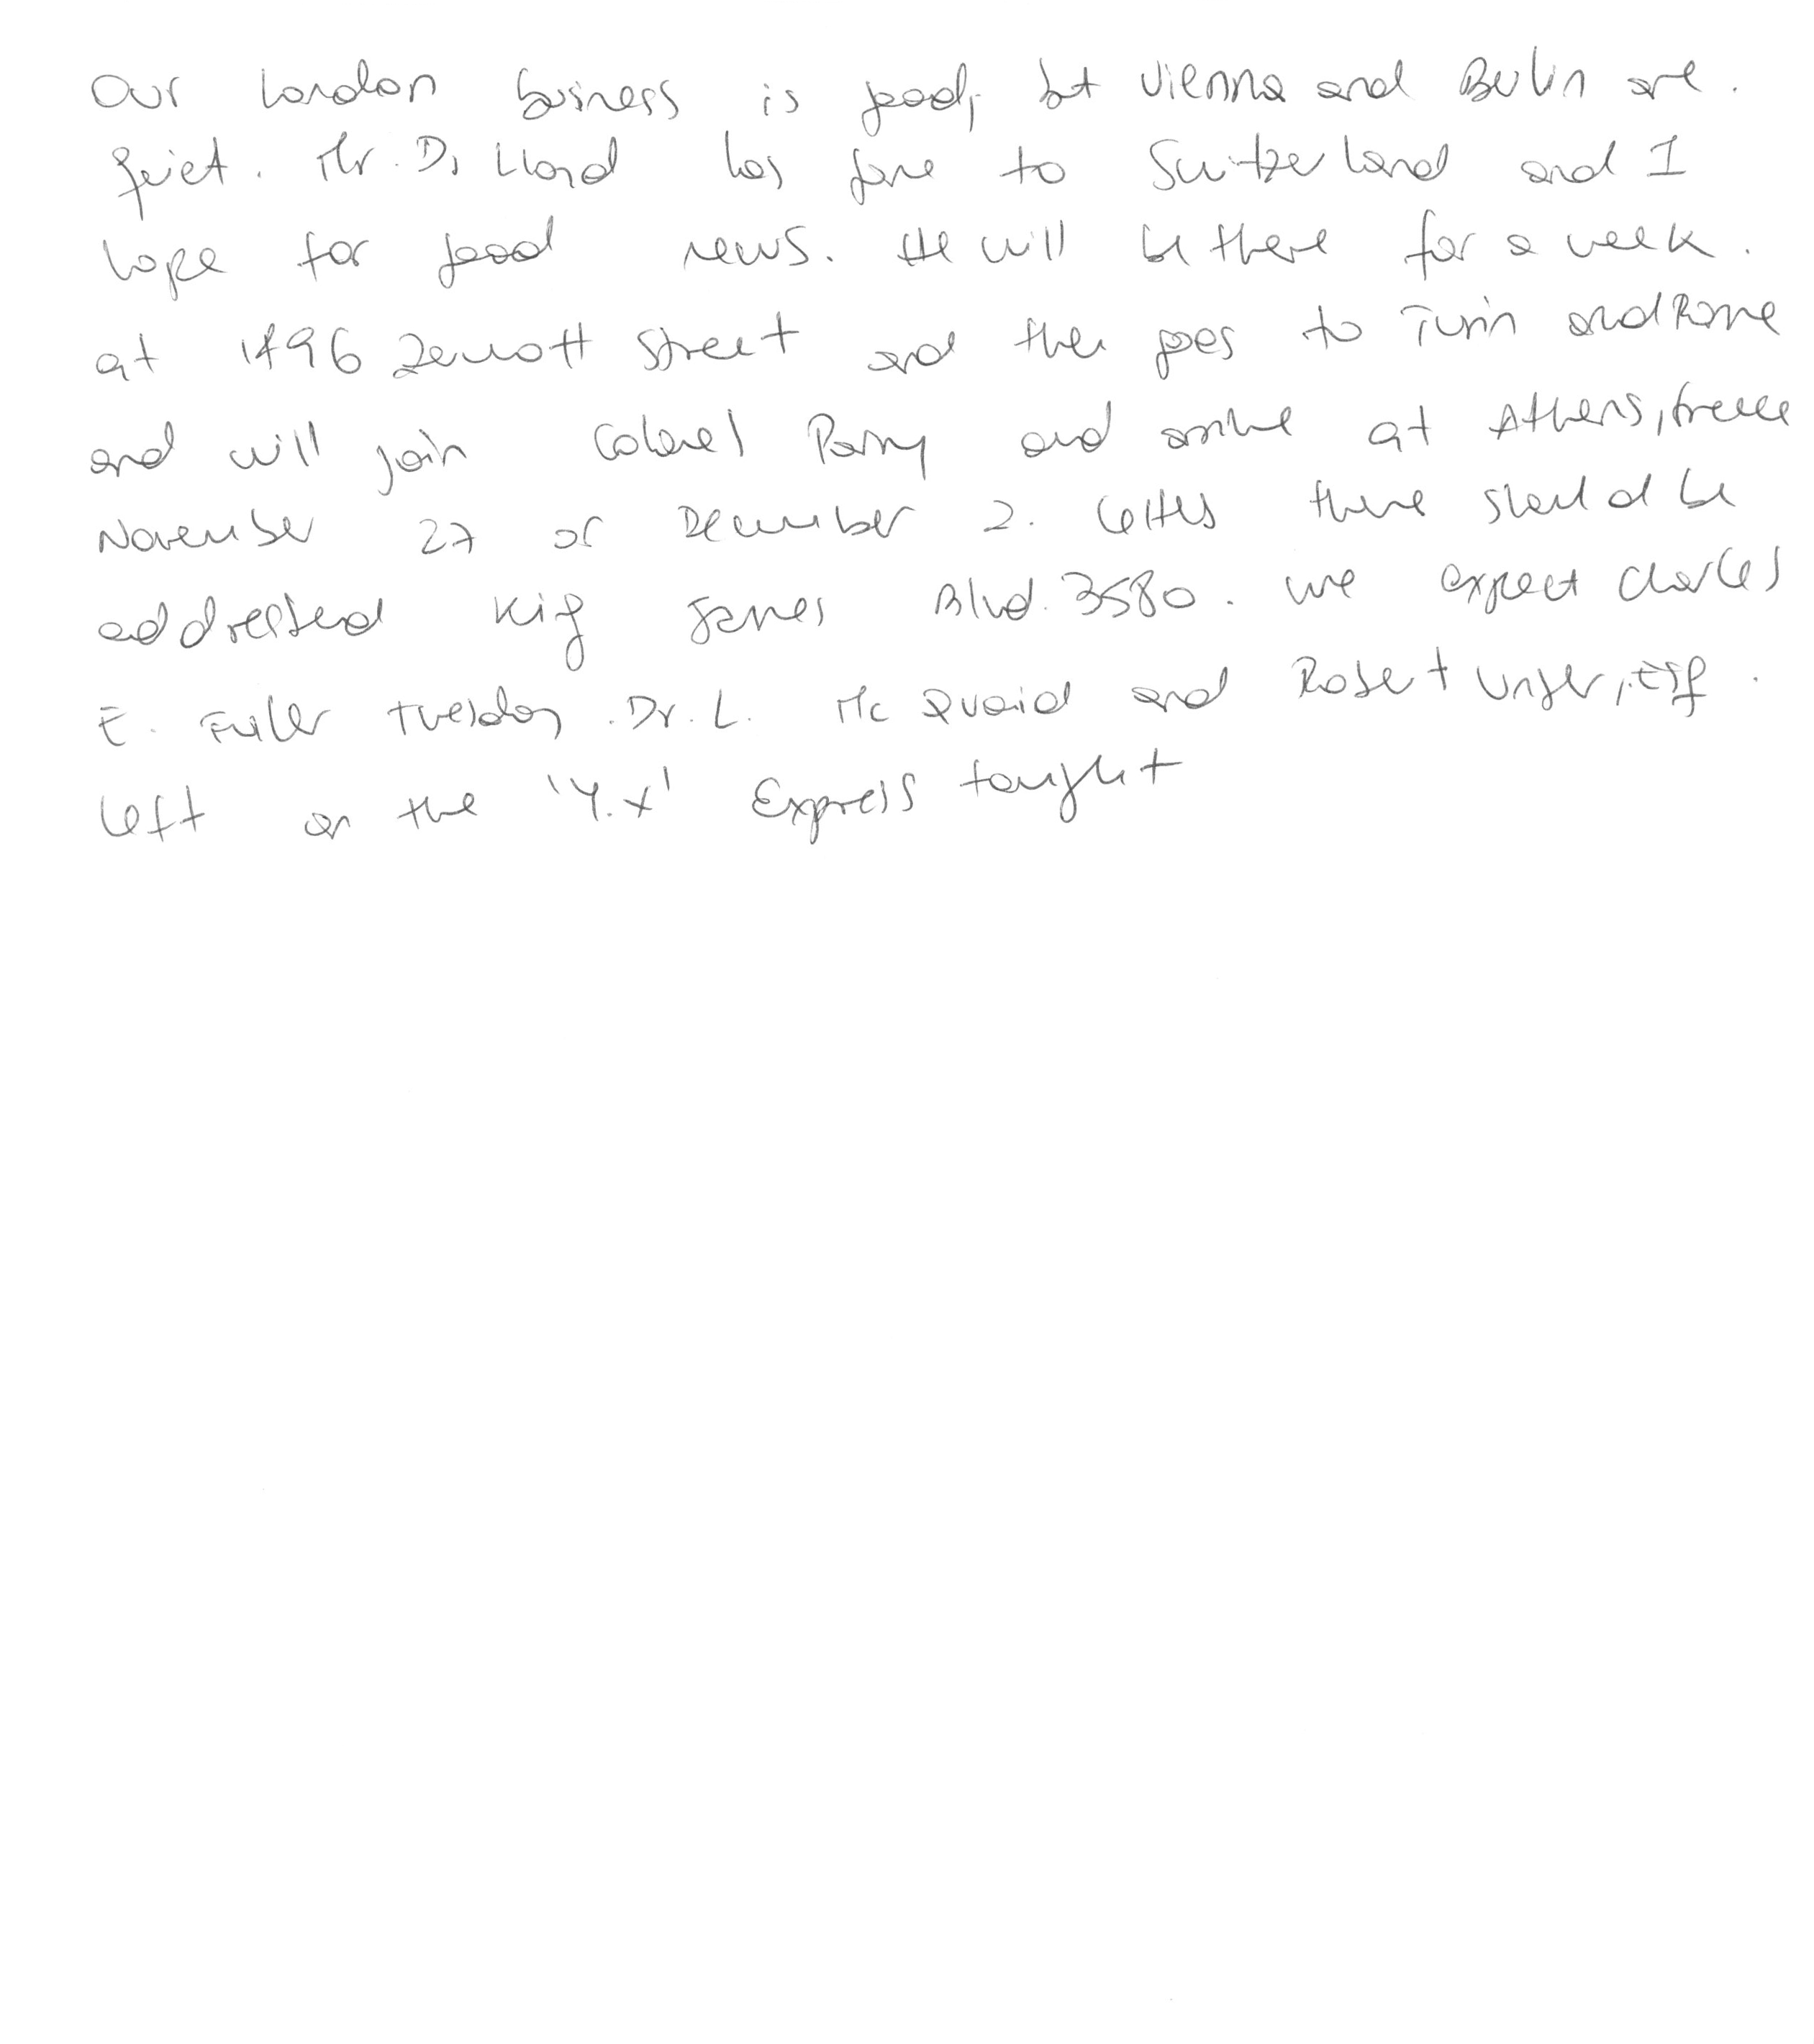 Our London business is good, but Vienna and Berlin are.
quiet. Mr. D. Lloyd has gone to Switzerland and I
hope for good news. He will be there for a week.
at 1496 Zermott Street and then goes to Turin and Rome
and will join Colonel Parry and arrive at Athens, Greece
November 27 or December 2. Letters there should be
addressed King James Blvd. 3580. We expect Charles
E. Fuller Tuesday. Dr. L. Mc Quaid and Robert Unger, Esq.
left on the 'Y.X' Express tonight